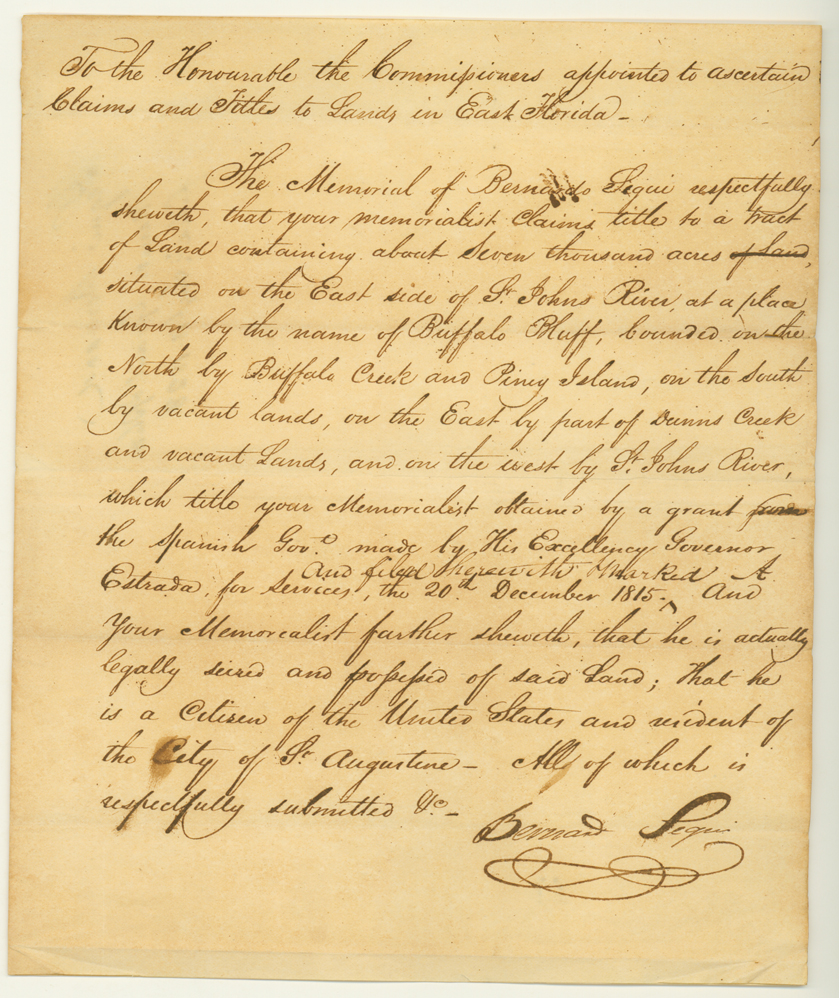 To the Honourable the Commissioners appointed to ascertain
Claims and Titles to Lands in East Florida -
The Memorial of Bernardo Segui respectfully
sheweth, that your memorialist Claims title to a tract
of Land containing about Seven thousand acres of land,
situated on the East side of St. Johns River, at a place
Known by the name of Buffalo Bluff, bounded on the
North by Buffalo Creek and Piney Island, on the South
by vacant lands, on the East by part of Dunns Creek
and vacant Lands, and on the west by St. Johns River,
which title your Memorialist obtained by a grant from
the Spanish Govt. made by His Excellency Governor
And filed herewith Marked A
Estrada, for services, the 20th December 1815 -^ And
Your Memorialist farther sheweth, that he is actually
legally seized and possessed of said Land; That he
is a Citizen of the United States and resident of
the City of St. Augustine - All of which is
respectfully submitted &c. -
Bernard Segui